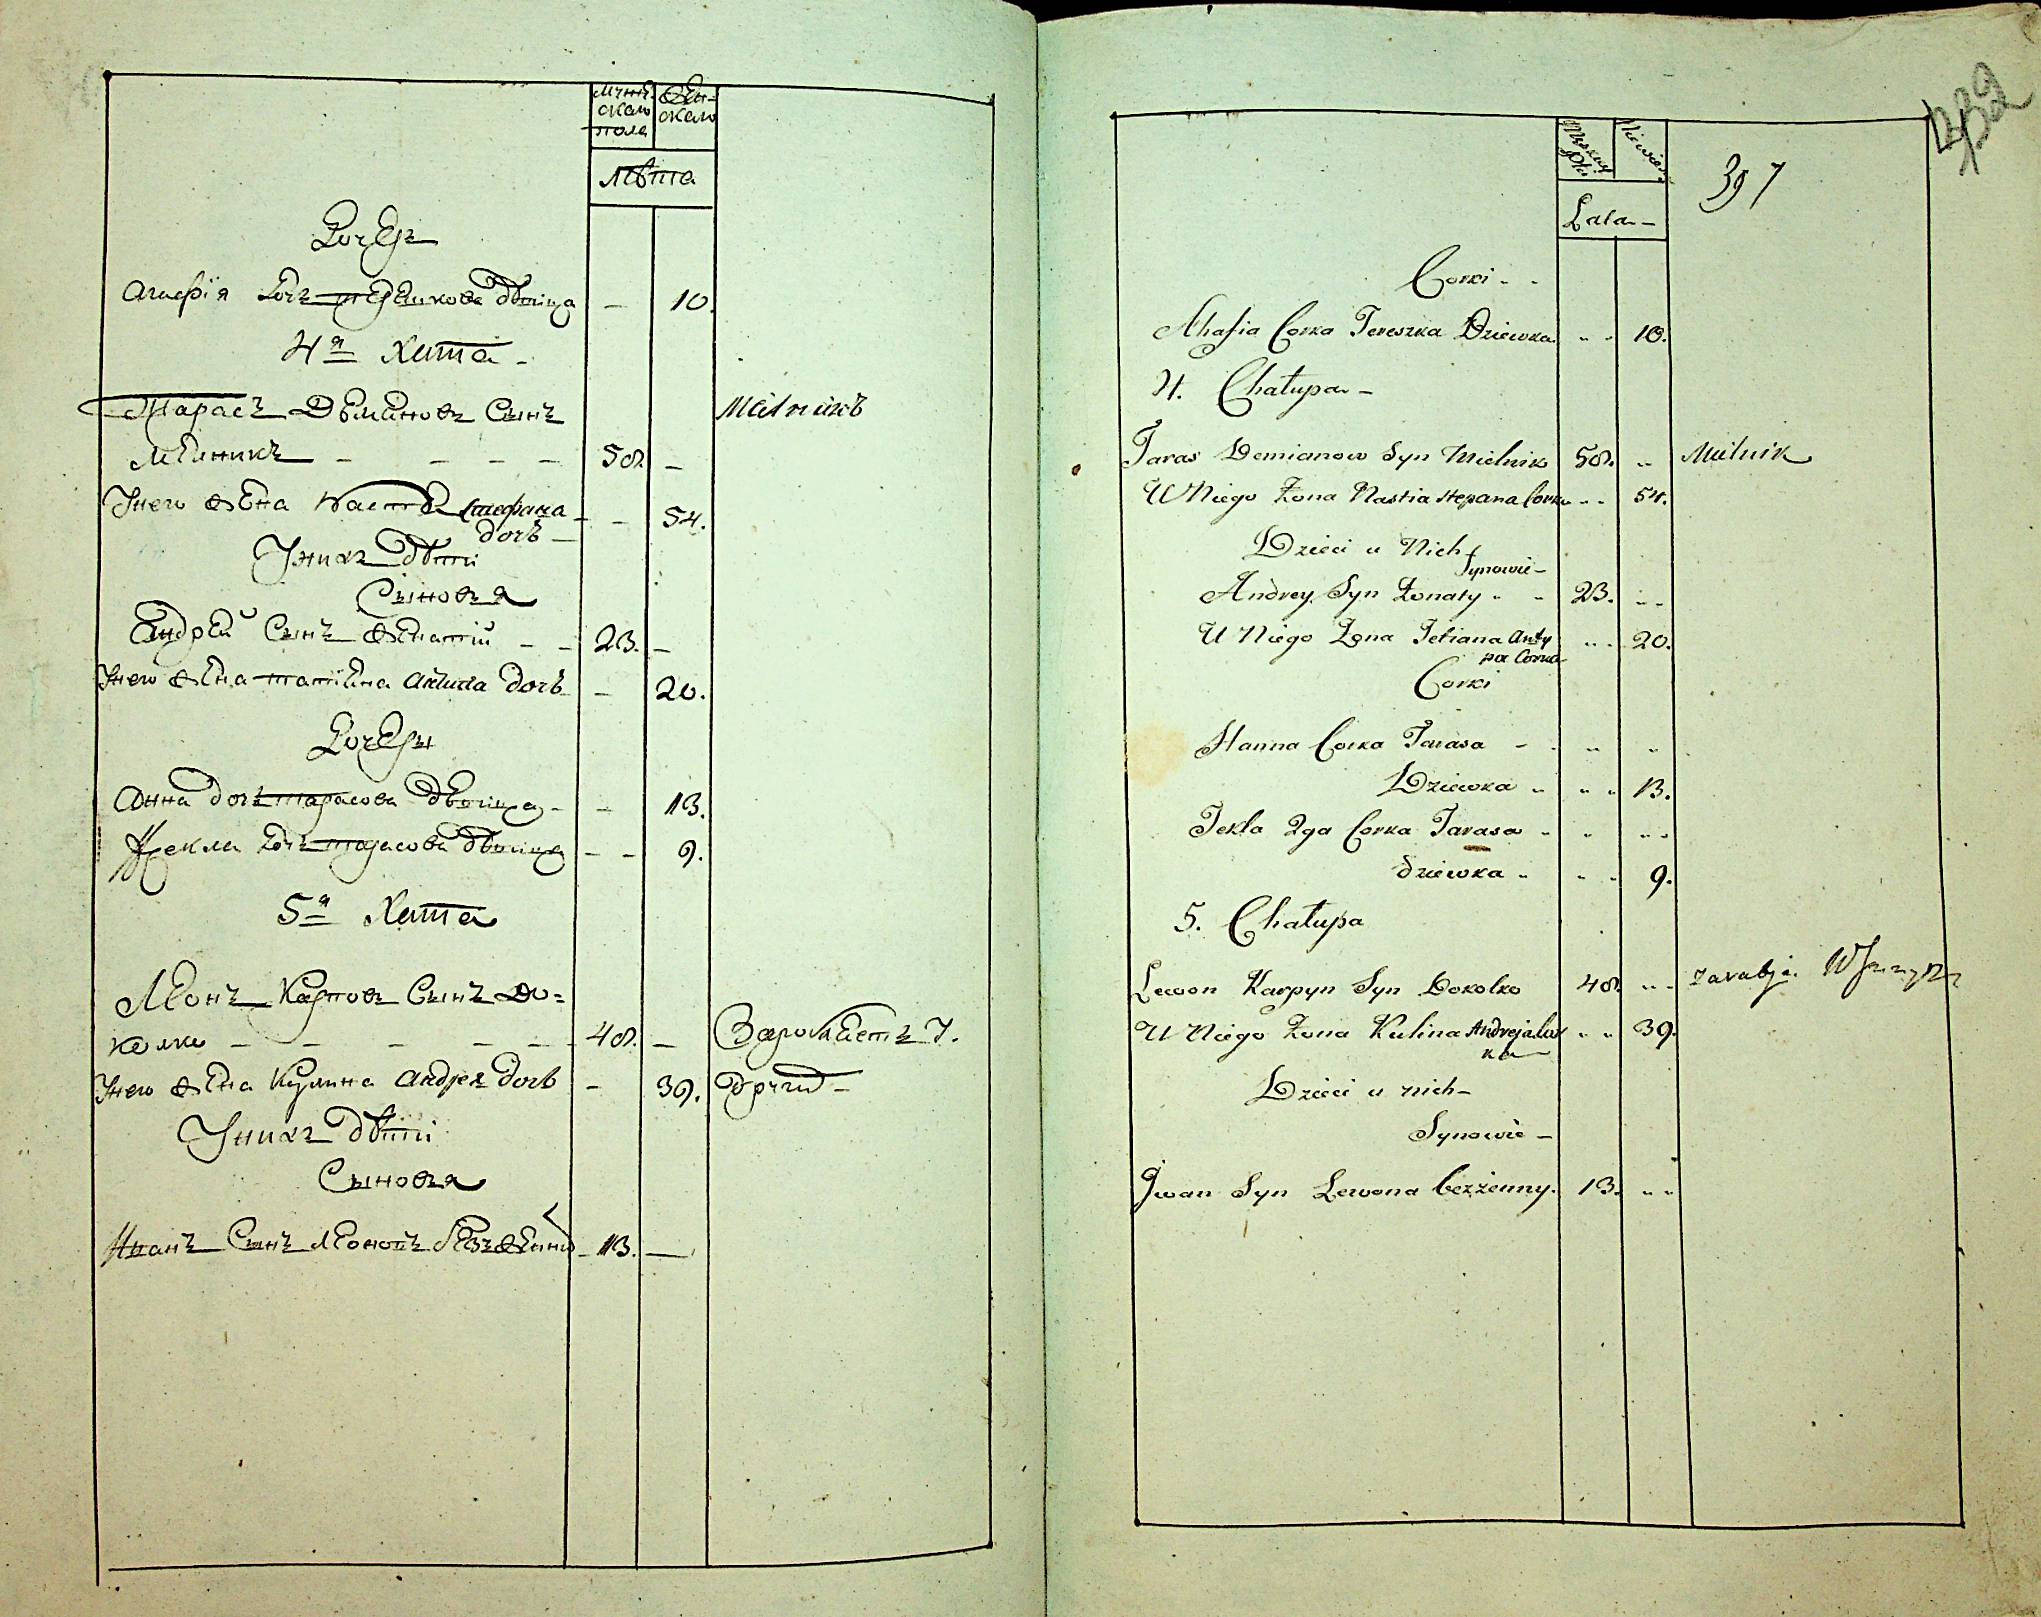 мужескаго пола
женскаго
Лѣта
Дочерь
Агафія дочь терешкова дѣвица — 10.
4я Хата —
Тарасъ Демяновъ Сынъ Мельникъ
Мелникъ — — — — 58. —
Унего жена Настя Стефана — — 54.
дочь —
Унихъ дѣти
Сыновья
Андрей Сынъ женатій — — 23. —
Унего жена татіана антипа дочь — 20.
Дочеры
Анна дочь тарасова дѣвица — — 13.
Фекла дочь тарасова дѣвица — — 9.
5я Хата
Леонъ Карповъ Сынъ До=
колко — — — — — 48. — Зароблаетъ У.
Унего жена Кулина андрея дочь — 39. другид —
Унихъ дѣти
Сыновья
Иванъ Сынъ Леоновъ безженній — 13. —
432
397
Męzkiey płci
Niewies.
Lata —
Corki - -
Ahafia Corka Tereszka Dziewka " " 10.
4. Chałupa —
Taras Demianow Syn Mielnik 58. " Mielnik
U Niego Żona Nastia stepana Corka " " 54.
Dzieci u Nich
Synowie —
Andrey Syn Żonaty " " 23. " "
U Niego Żona Tetiana Anty " " 20.
pa Corka
Corki
Hanna Corka Tarasa — " "
Dziewka " " " 13.
Tekla 2ga Corka Tarasa " " " "
dziewka " " " 9.
5. Chałupa
Lewon Karpyn Syn Dokolko 48. " " zarabja.
U Niego Żona Kulina Andreja Cor " " 39.
ka —
Dzieci u nich —
Synowie —
Jwan Syn Lewona bezżenny. 13. " "